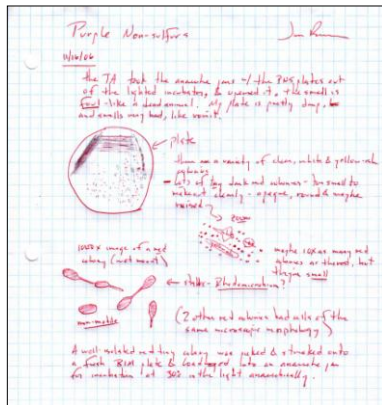 Purple Non-sulfurs
11/16/06
the TA took the anaerobe jars w/ the plates out
of the lighted incubator, & opened it, the smell is
foul - like a dead animal. My plate is pretty damp,
and smells very bad, like vomit.
plate
there are a variety of clear, white & yellow-ish
- Lots of tiny dark red colonies - too small to
make out clearly - opaque, round & maybe
raised
zoom
1000x image of a red
colony (wet mount)
maybe 10x as many red
colonies as the rest, but
they're small
← stalks - Rhodomicrobium?
non-motile
(2 other red colonies had cells of the
same microscopic morphology)
A well-isolated red tiny colony was picked & streaked onto
a fresh plate & into an anaerobe jar
for incubation at 30° in the light anaerobically.